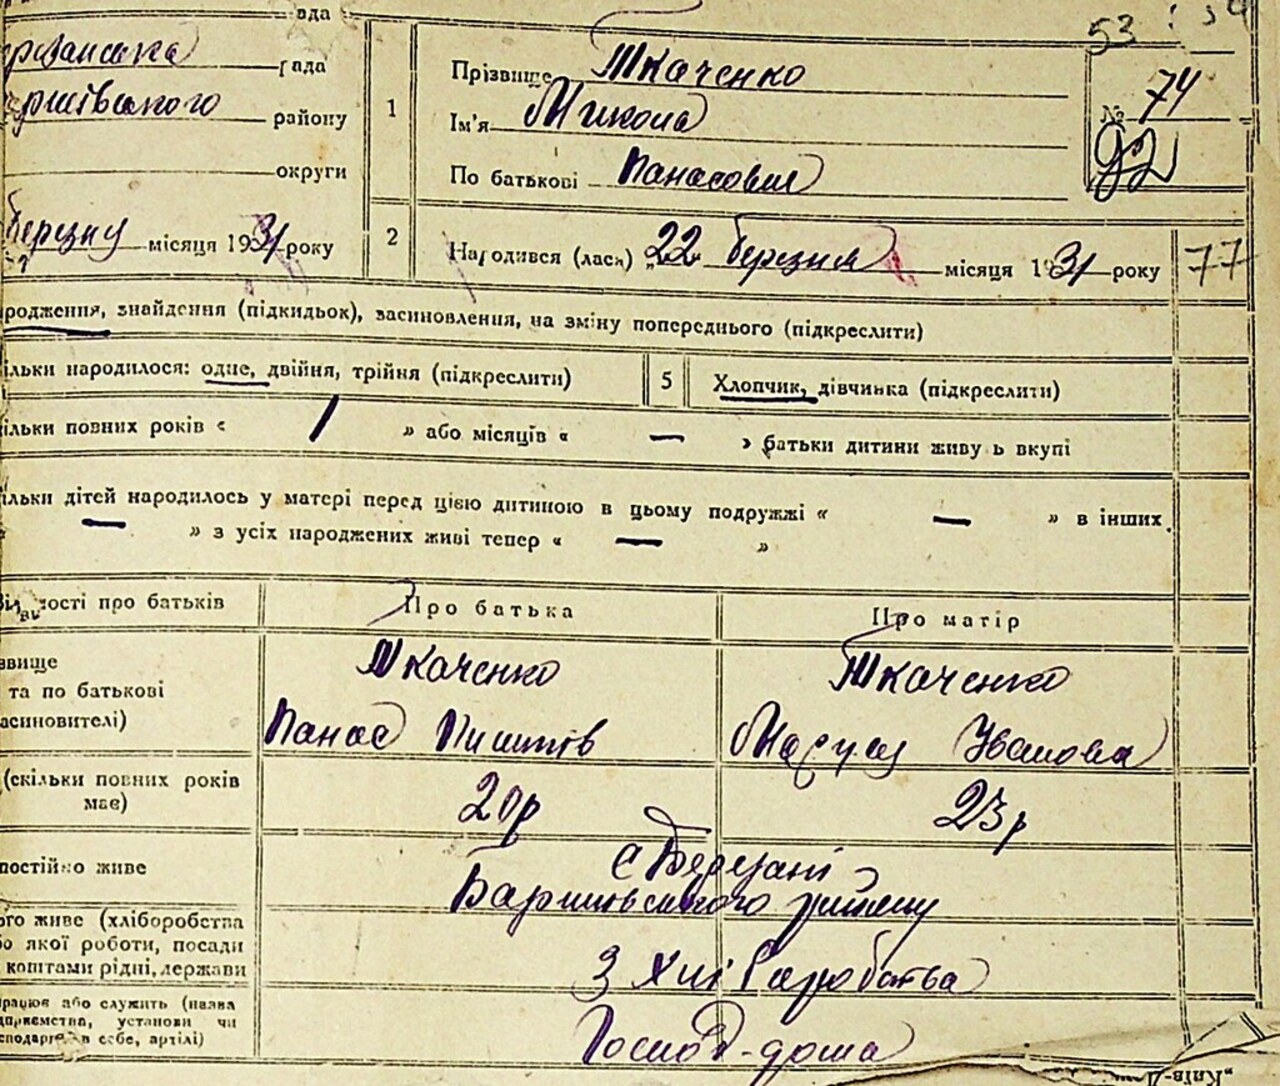 ада
53
рада
районy
округи
березну місяця 1931 року
1
Прізвище Ткаченко
Ім'я Микола
По батькові Панасович
№ 74
92
2
Народився (лася) „22 березня місяця 1931 року
77
родження, знайдення (підкидьок), засиновлення, на зміну попереднього (підкреслити)
ільки народилося: одне, двійня, трійня (підкреслити)
5
Хлопчик, дівчинка (підкреслити)
ільки повних років « 1 » або місяців « — » батьки дитини живуть вкупі
ільки дітей народилось у матері перед цією дитиною в цьому подружжі « — » в інших
« — » з усіх народжених живі тепер « — »
ості про батьків
Про батька
Про матір
звище
та по батькові
асиновителі)
Ткаченко
Панас
Ткаченко
Маруся Іванова
(скільки повних років
має)
20 р
23 р
постійно живе
с Березані
Баришівського району
ого живе (хліборобства
бо якої роботи, посади
коштами рідні, держави
З хліборобства
працює або служить (назва
дприємства, установи чи
сподарює в себе, артілі)
Господ-дома
„Київ-Д